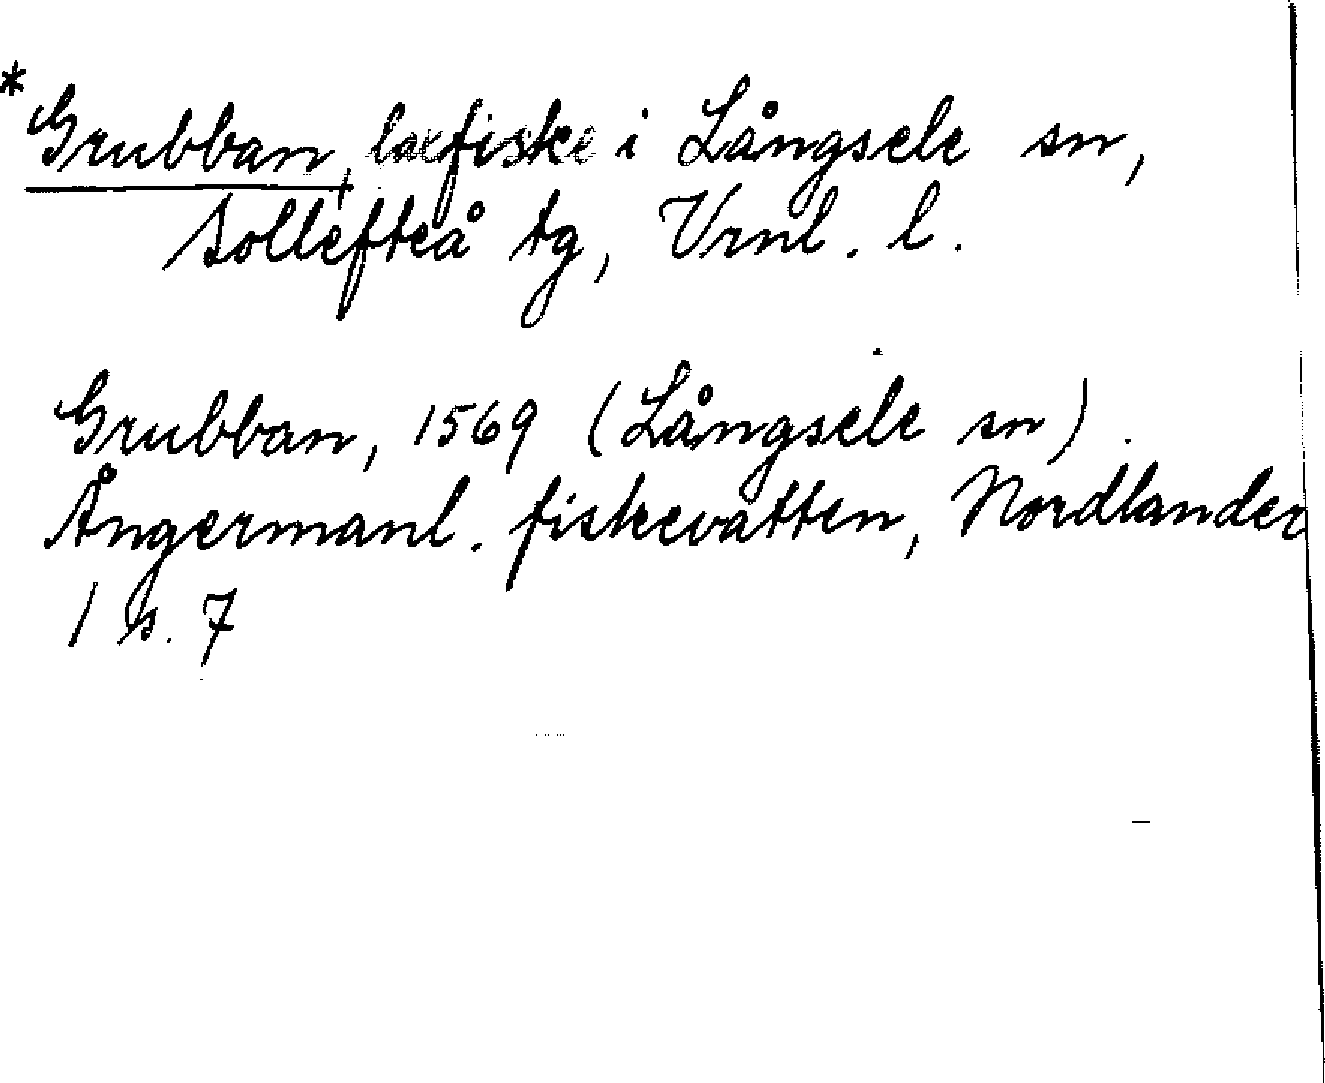 *Grubban, laxfiske i Långsele sn,
Sollefteå tg, Vrnl. l.
Grubban, 1569 (Långsele sn).
Ångermanl. fiskevatten, Nordlander
1 s. 7